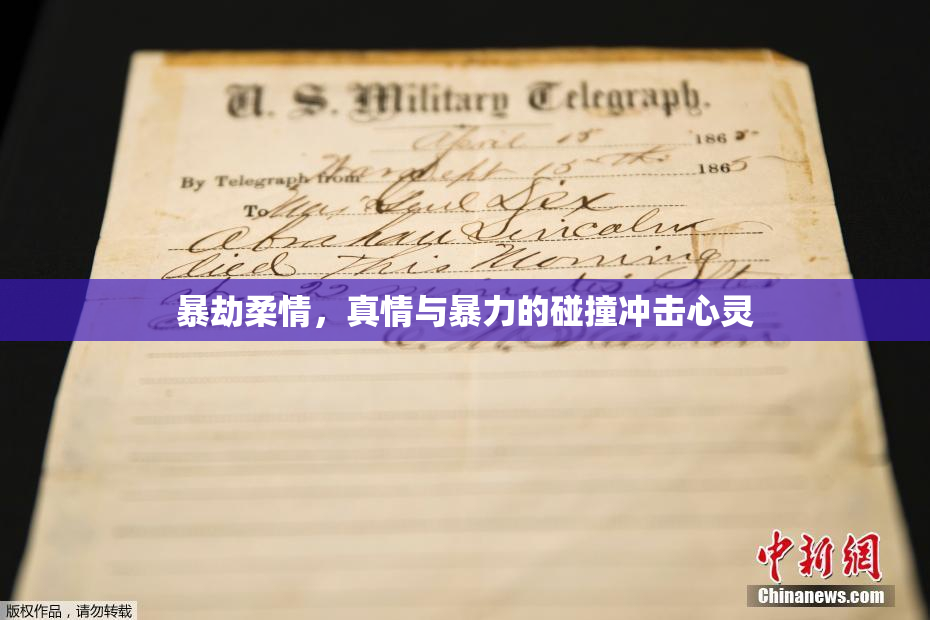 U. S. Military Telegraph.
April 15 1865
By Telegraph from War Dept 15th 1865
To Maj Genl Dix
Abraham Lincoln
died This Morning
22 minutes after
暴劫柔情，真情与暴力的碰撞冲击心灵
E. M. Stanton
中新网
Chinanews.com
版权作品，请勿转载